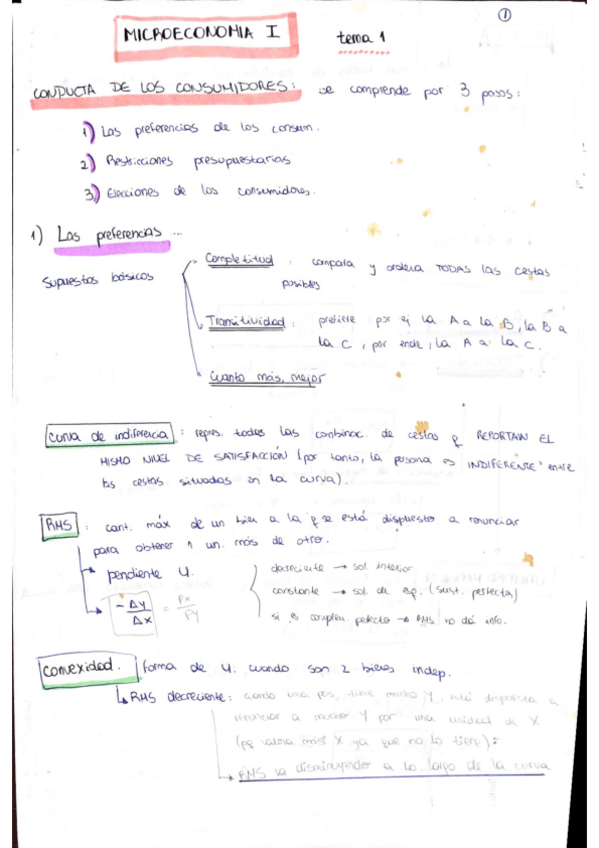 ①
MICROECONOMIA I tema 1
CONDUCTA DE LOS CONSUMIDORES: se comprende por 3 pasos:
1) Las preferencias de los consum.
2) Restricciones presupuestarias
3) Elecciones de los consumidores.
1) Las preferencias ...
Supuestos básicos
Completitud : compara y ordena TODAS las cestas
posibles
Transitividad : prefiere por ej la A a la B, la B a
la C, por ende, la A a la C.
Cuanto más, mejor
curva de indiferencia : repres. todas las combinac. de cestas q REPORTAN EL
MISMO NIVEL DE SATISFACCIÓN (por tanto, la persona es INDIFERENTE entre
las cestas situadas en la curva).
RMS : cant. máx de un bien a la q se está dispuesto a renunciar
para obtener 1 un. más de otro.
pendiente U.
-Δy/Δx = Px/Py
decreciente → sol. interior
constante → sol. de esq. (sust. perfectos)
si es complem. perfecto → RMS no dá info.
Convexidad. forma de U. cuando son 2 bienes indep.
↳ RMS decreciente: cuando una pers. tiene mucho Y, está dispuesta a
renunciar a mucho Y por una unidad de X
(pq valora más X ya que no lo tiene):
RMS va disminuyendo a lo largo de la curva